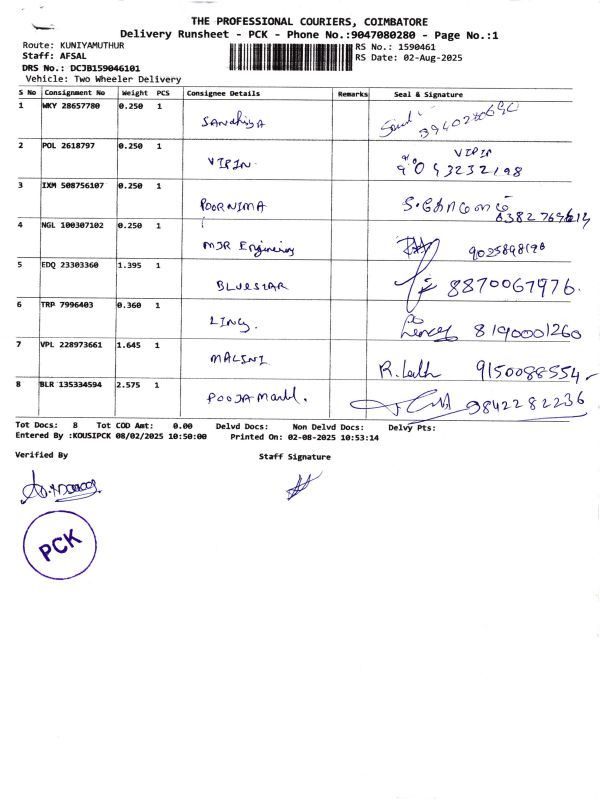 THE PROFESSIONAL COURIERS, COIMBATORE
Delivery Runsheet - PCK - Phone No.:9047080280 - Page No.:1
Route: KUNIYAMUTHUR
RS No.: 1590461
Staff: AFSAL
RS Date: 02-Aug-2025
DRS No.: DCJB159046101
Vehicle: Two Wheeler Delivery
S No Consignment No Weight PCS Consignee Details Remarks Seal & Signature
1 WKY 28657780 0.250 1 SANdhiyA
2 POL 2618797 0.250 1 VIPIN. VIPIN
3 IXM 508756107 0.250 1 POORNIMA
4 NGL 100307102 0.250 1 MJR Engineering
5 EDQ 23303360 1.395 1 BLUESTAR 8870067976.
6 TRP 7996403 0.360 1 8190001260
7 VPL 228973661 1.645 1 MALINI 9150088554
8 BLR 135334594 2.575 1 POOJA 9842282236
Tot Docs: 8 Tot COD Amt: 0.00 Delvd Docs: Non Delvd Docs: Delvy Pts:
Entered By :KOUSIPCK 08/02/2025 10:50:00 Printed On: 02-08-2025 10:53:14
Verified By Staff Signature
PCK